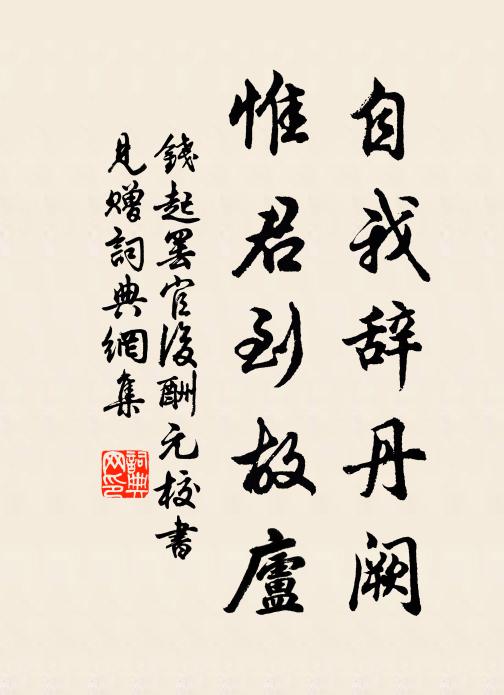 自我辞丹阙
惟君到故廬
錢起罢官後酬元校書
見贈詞典網集
詞典
网印